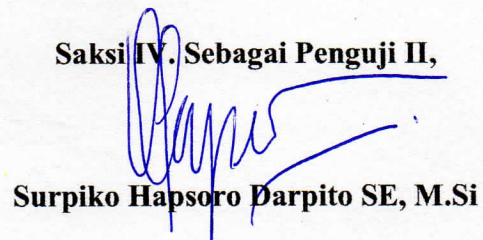 Saksi IV. Sebagai Penguji II,
Surpiko Hapsoro Darpito SE, M.Si